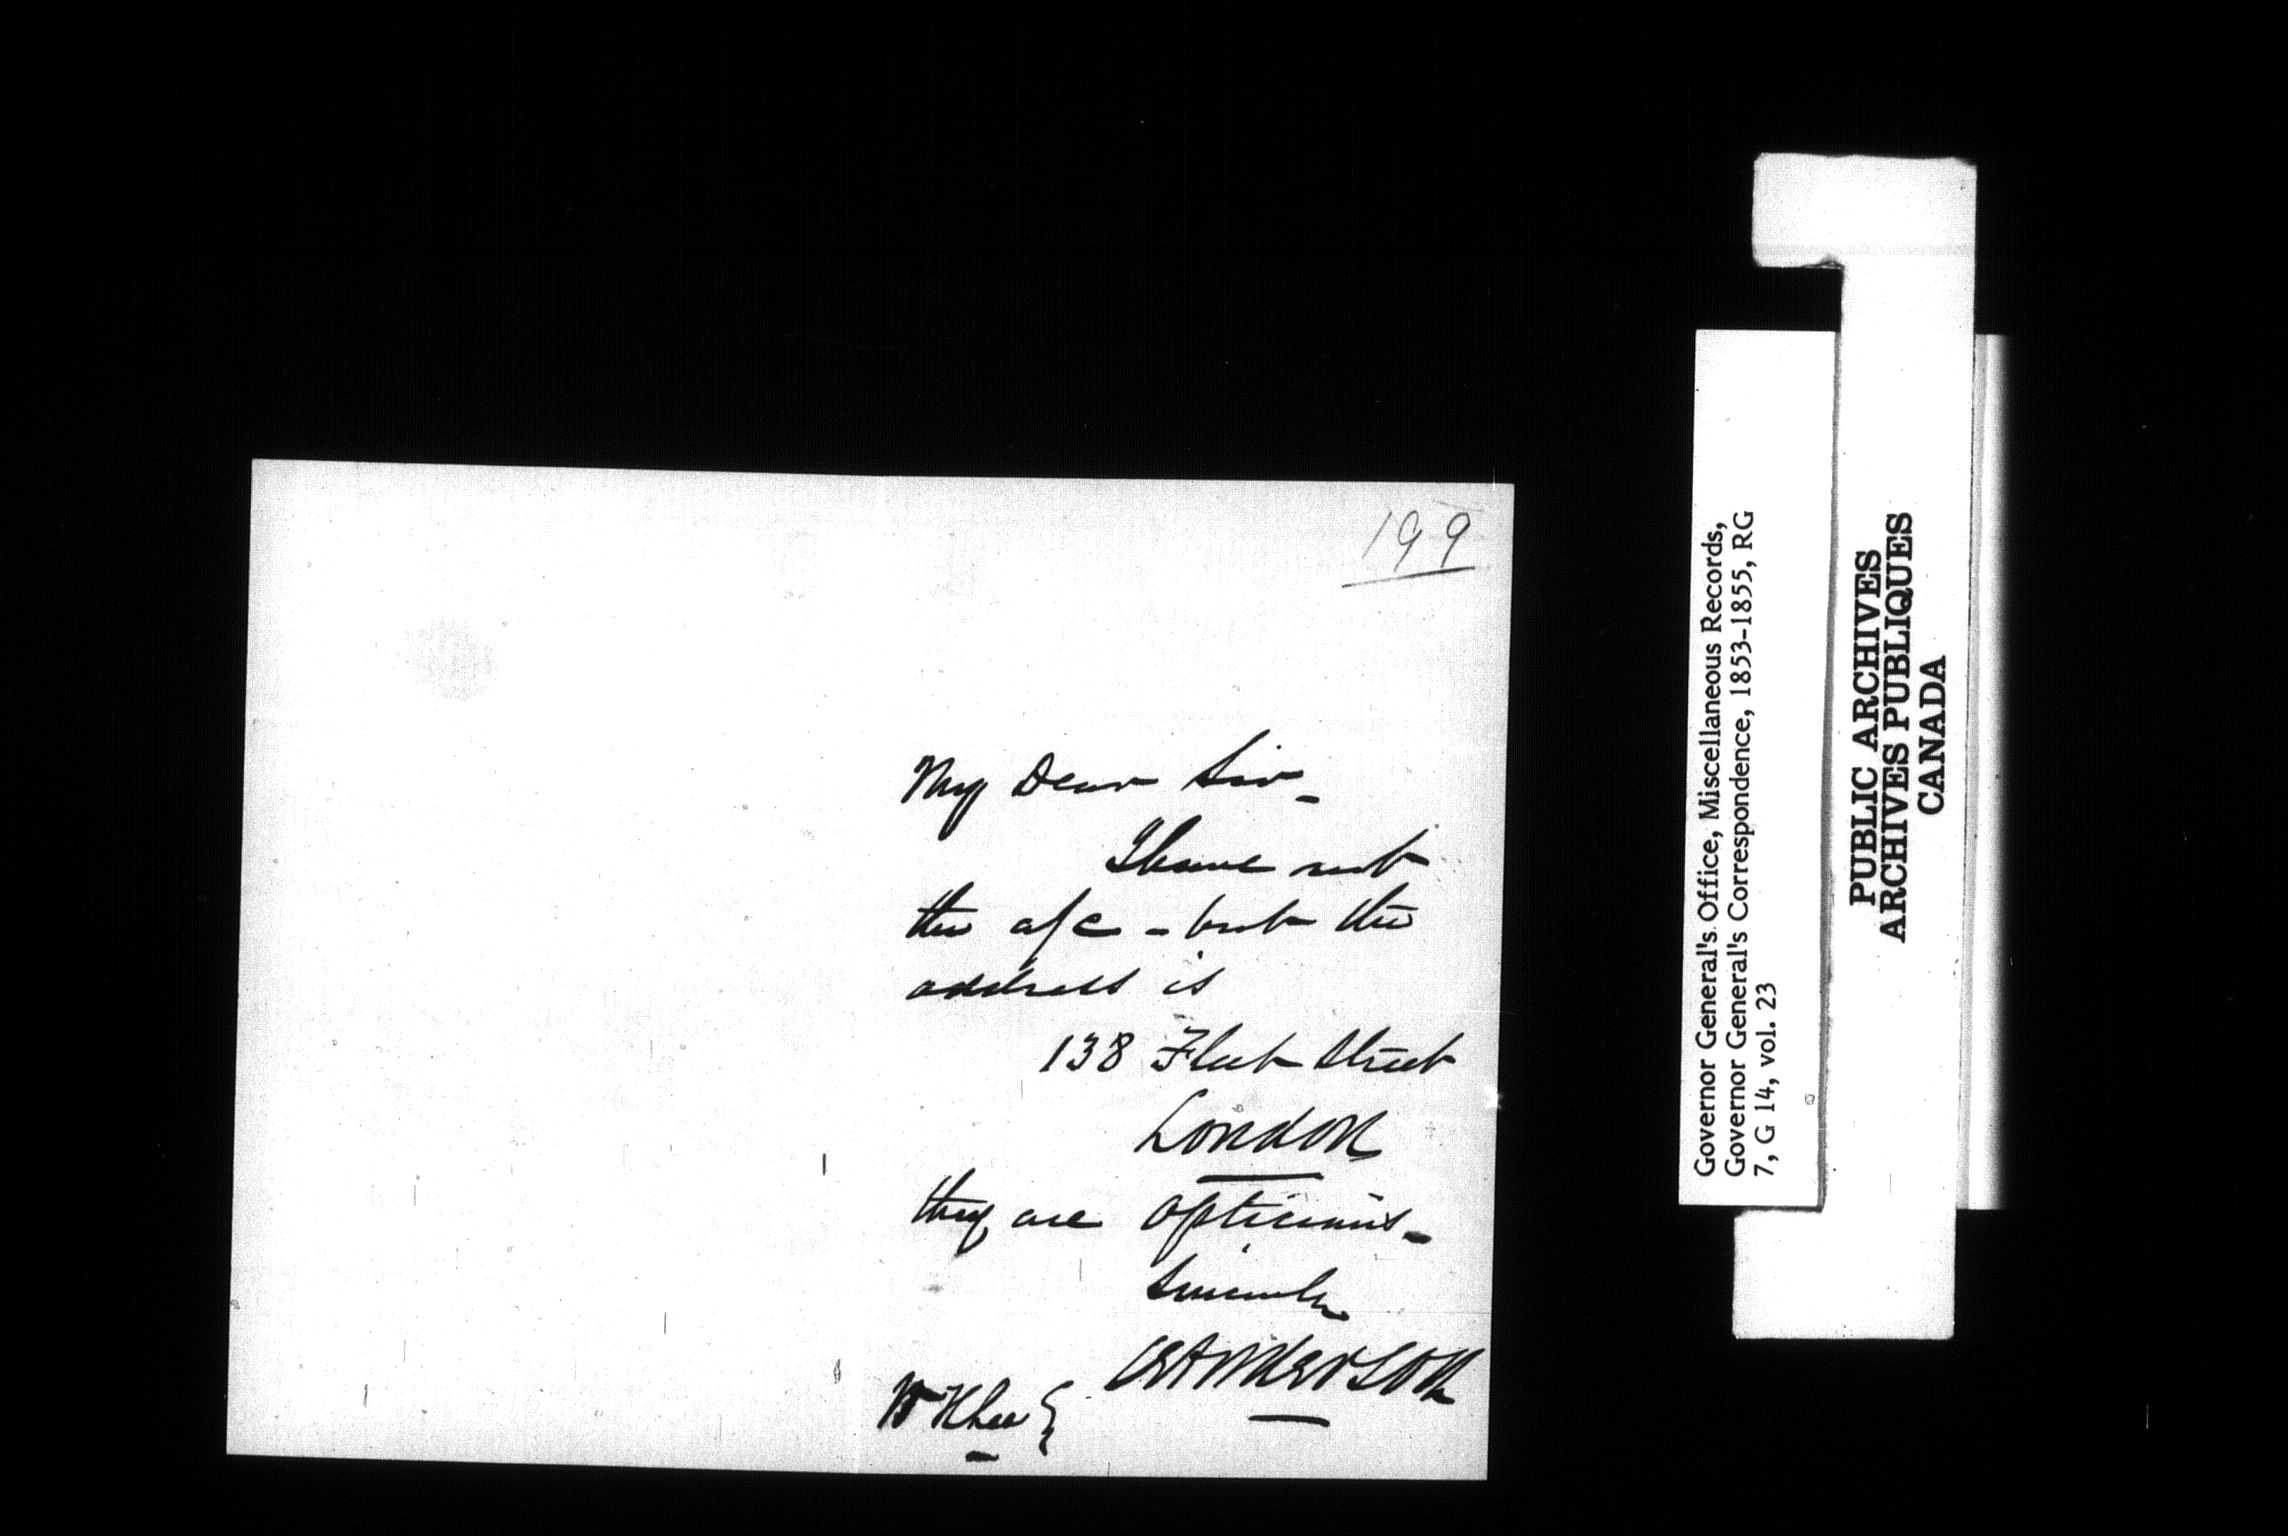 199
My Dear Sir -
I have not
the a/c - but the
address is
138 Fleet Street
London
they are opticians -
Sincerely
CEAnderson
Governor General's Office, Miscellaneous Records,
Governor General's Correspondence, 1853-1855, RG
7, G 14, vol. 23
PUBLIC ARCHIVES
ARCHIVES PUBLIQUES
CANADA